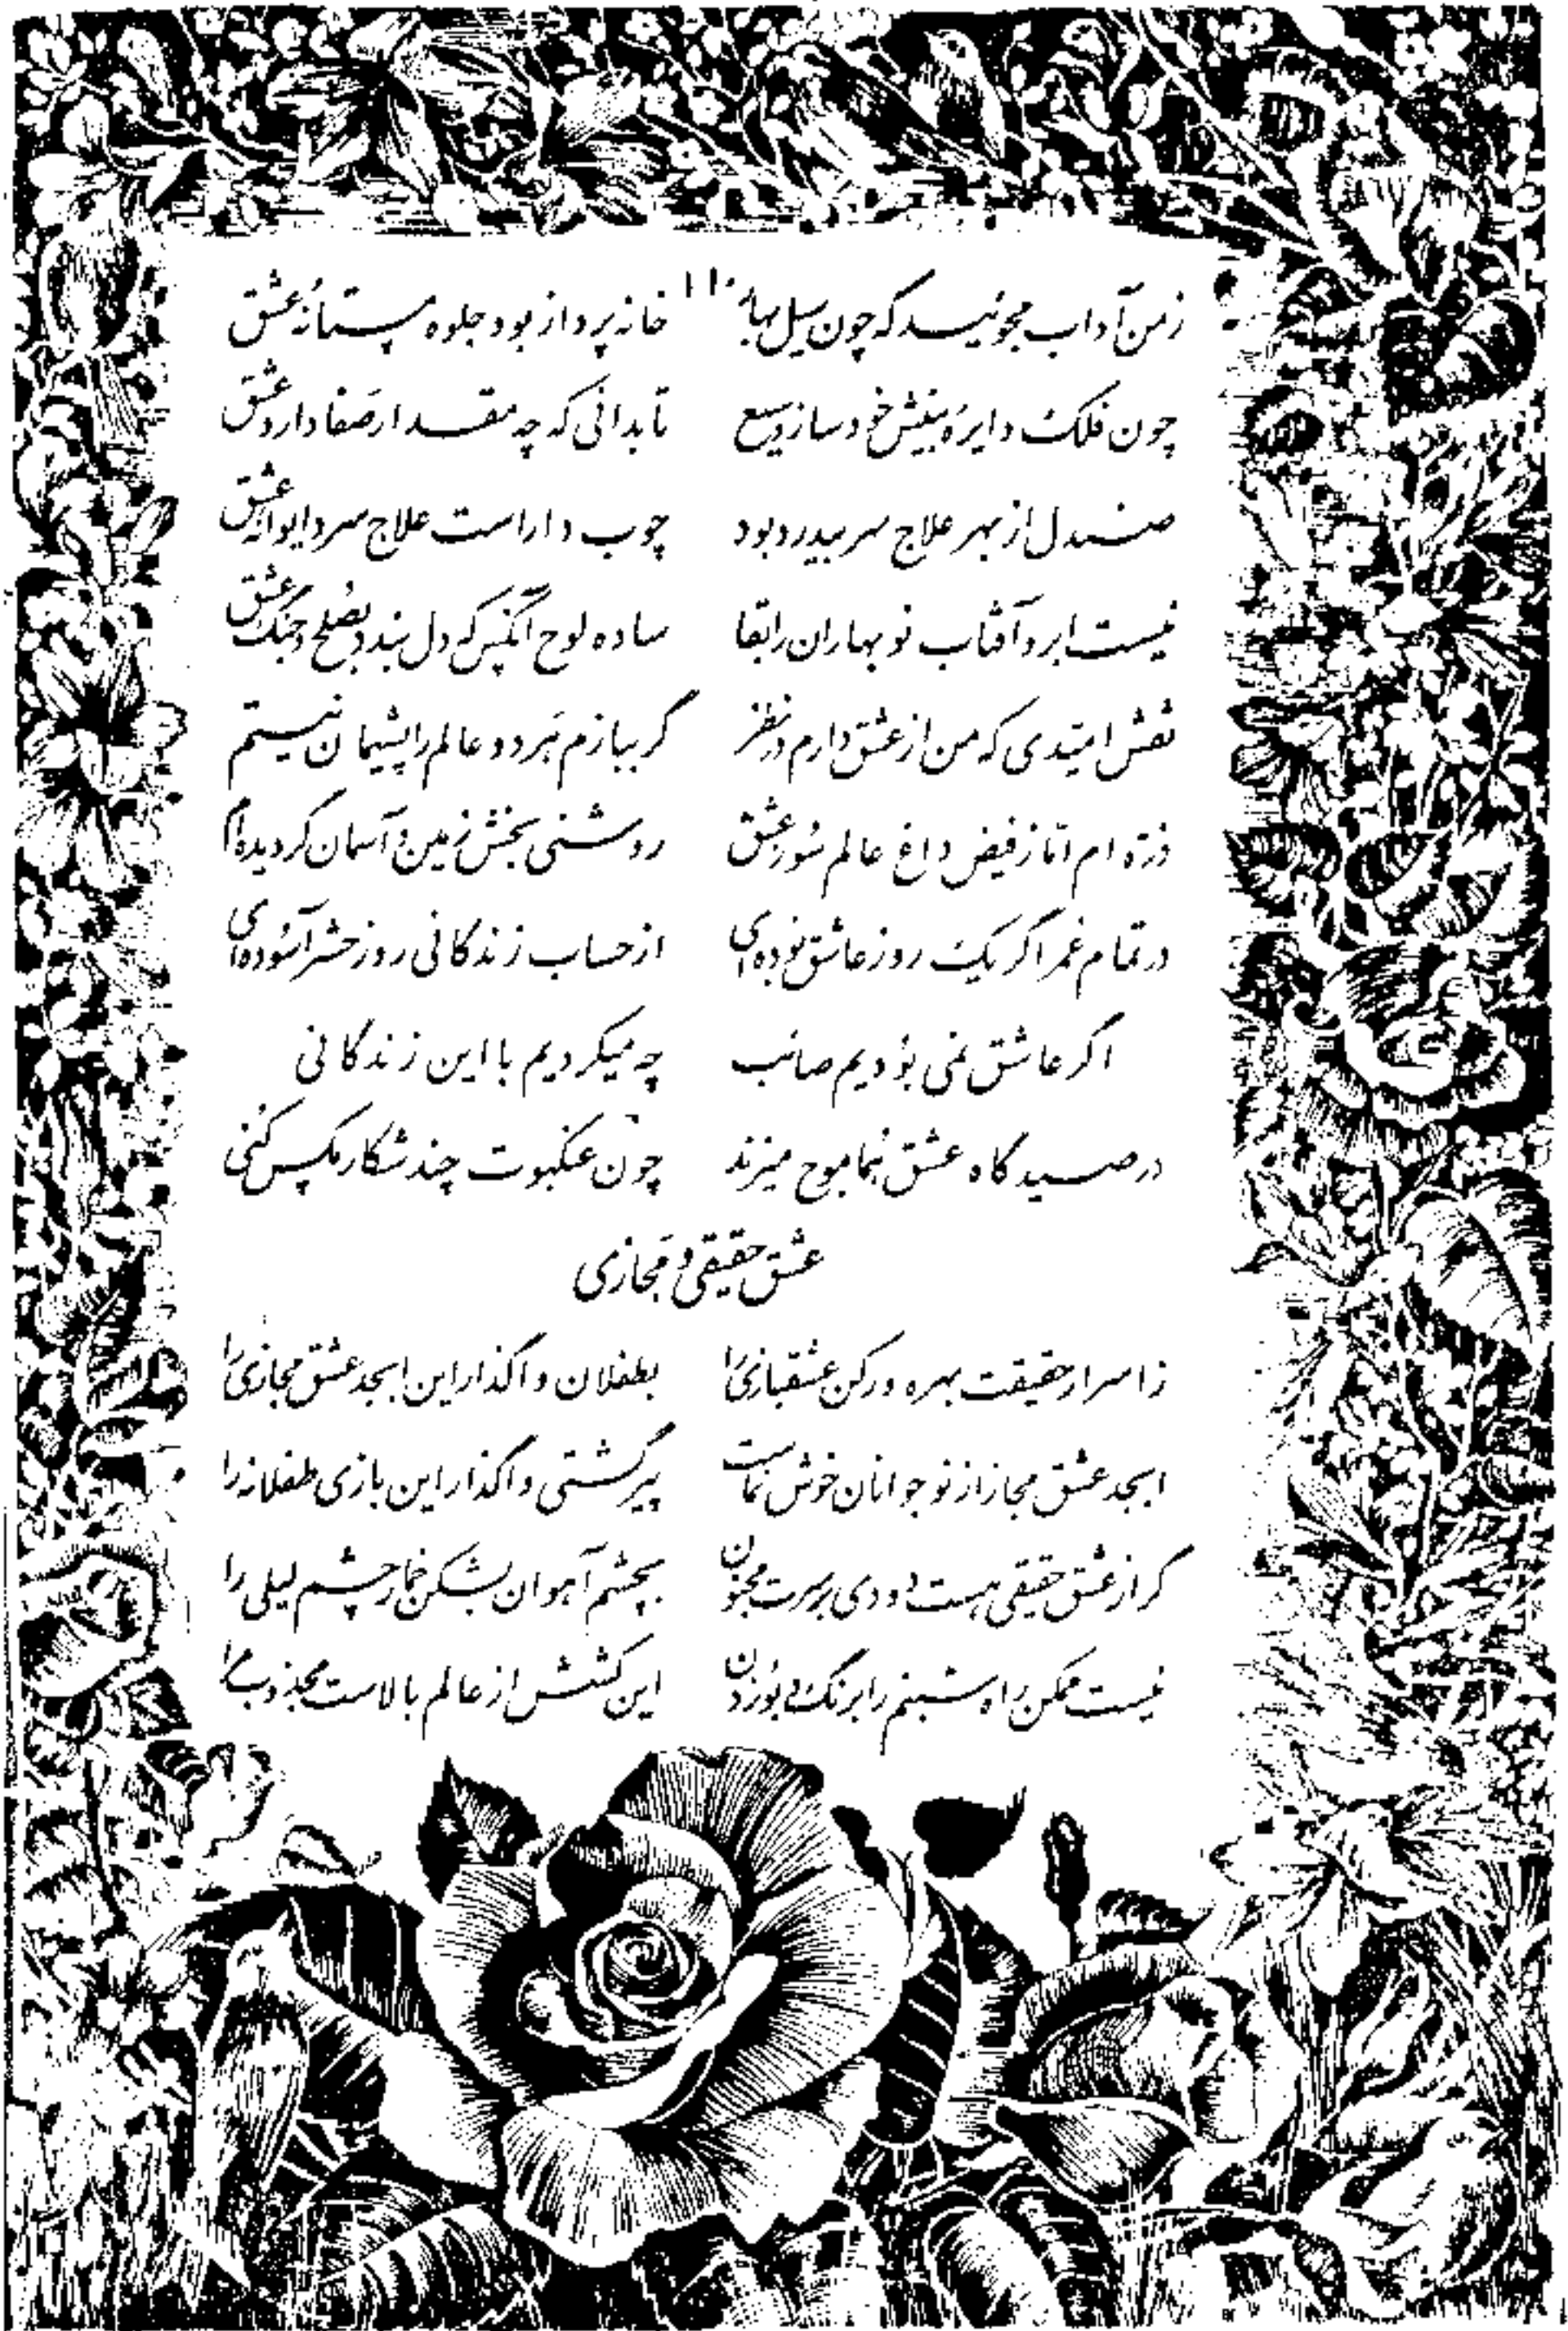 زمن آداب مجوئید که چون سیل بهار خانه پرداز بود جلوه مستانهٔ عشق
چون فلک دایرهٔ بینش خود ساز وسیع تا بدانی که چه مقدار صفا دارد عشق
صندل از بهر علاج سر بیدرد بود چوب دار است علاج سر دیوانهٔ عشق
نیست ابر و آفتاب نوبهاران را بقا ساده لوح آنکس که دل بندد بصلح و جنگ عشق
نقش امیّدی که من از عشق دارم در نظر گر ببازم هر دو عالم را پشیمان نیستم
ذرّه ام امّا ز فیض داغ عالم سوز عشق روشنی بخش زمین و آسمان گردیده‌ام
در تمام عُمر اگر یک روز عاشق بوده‌ای از حساب زندگانی روز حشر آسوده‌ای
اگر عاشق نمی بودیم صائب چه میکردیم با این زندگانی
در صیدگاه عشق هُما موج میزند چون عنکبوت چند شکار مگس کنی
عشق حقیقی و مَجازی
ز اسرار حقیقت بهره ور کن عشقبازی را بطفلان واگذار این ابجد عشق مجازی را
ابجد عشق مجاز از نوجوانان خوش نماست پیر گشتی واگذار این بازی طفلانه را
گر از عشق حقیقی هست دودی بر سرت مجنون بچشم آهوان بشکن خمار چشم لیلی را
نیست ممکن راه شبنم را برنگ و بو زدن این کشش از عالم بالاست مجذوب مرا